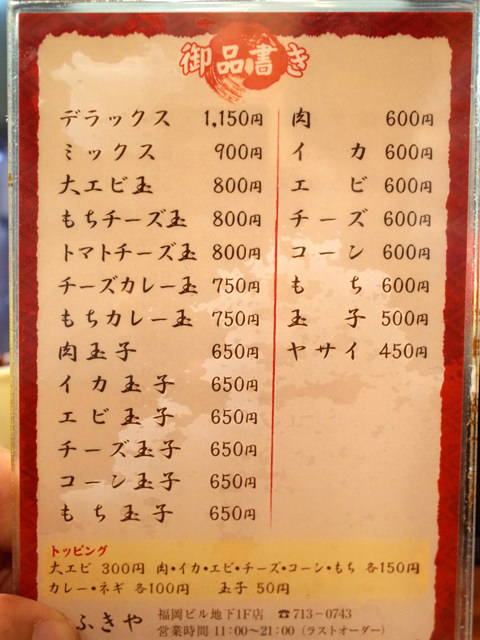 御品書き
デラックス 1,150円
ミックス 900円
大エビ玉 800円
もちチーズ玉 800円
トマトチーズ玉 800円
チーズカレー玉 750円
もちカレー玉 750円
肉玉子 650円
イカ玉子 650円
エビ玉子 650円
チーズ玉子 650円
コーン玉子 650円
もち玉子 650円
肉 600円
イカ 600円
エビ 600円
チーズ 600円
コーン 600円
もち 600円
玉子 500円
ヤサイ 450円
トッピング
大エビ 300円 肉・イカ・エビ・チーズ・コーン・もち 各150円
カレー・ネギ 各100円 玉子 50円
ふきや 福岡ビル地下1F店 ☎713-0743
営業時間 11:00〜21:00 (ラストオーダー)